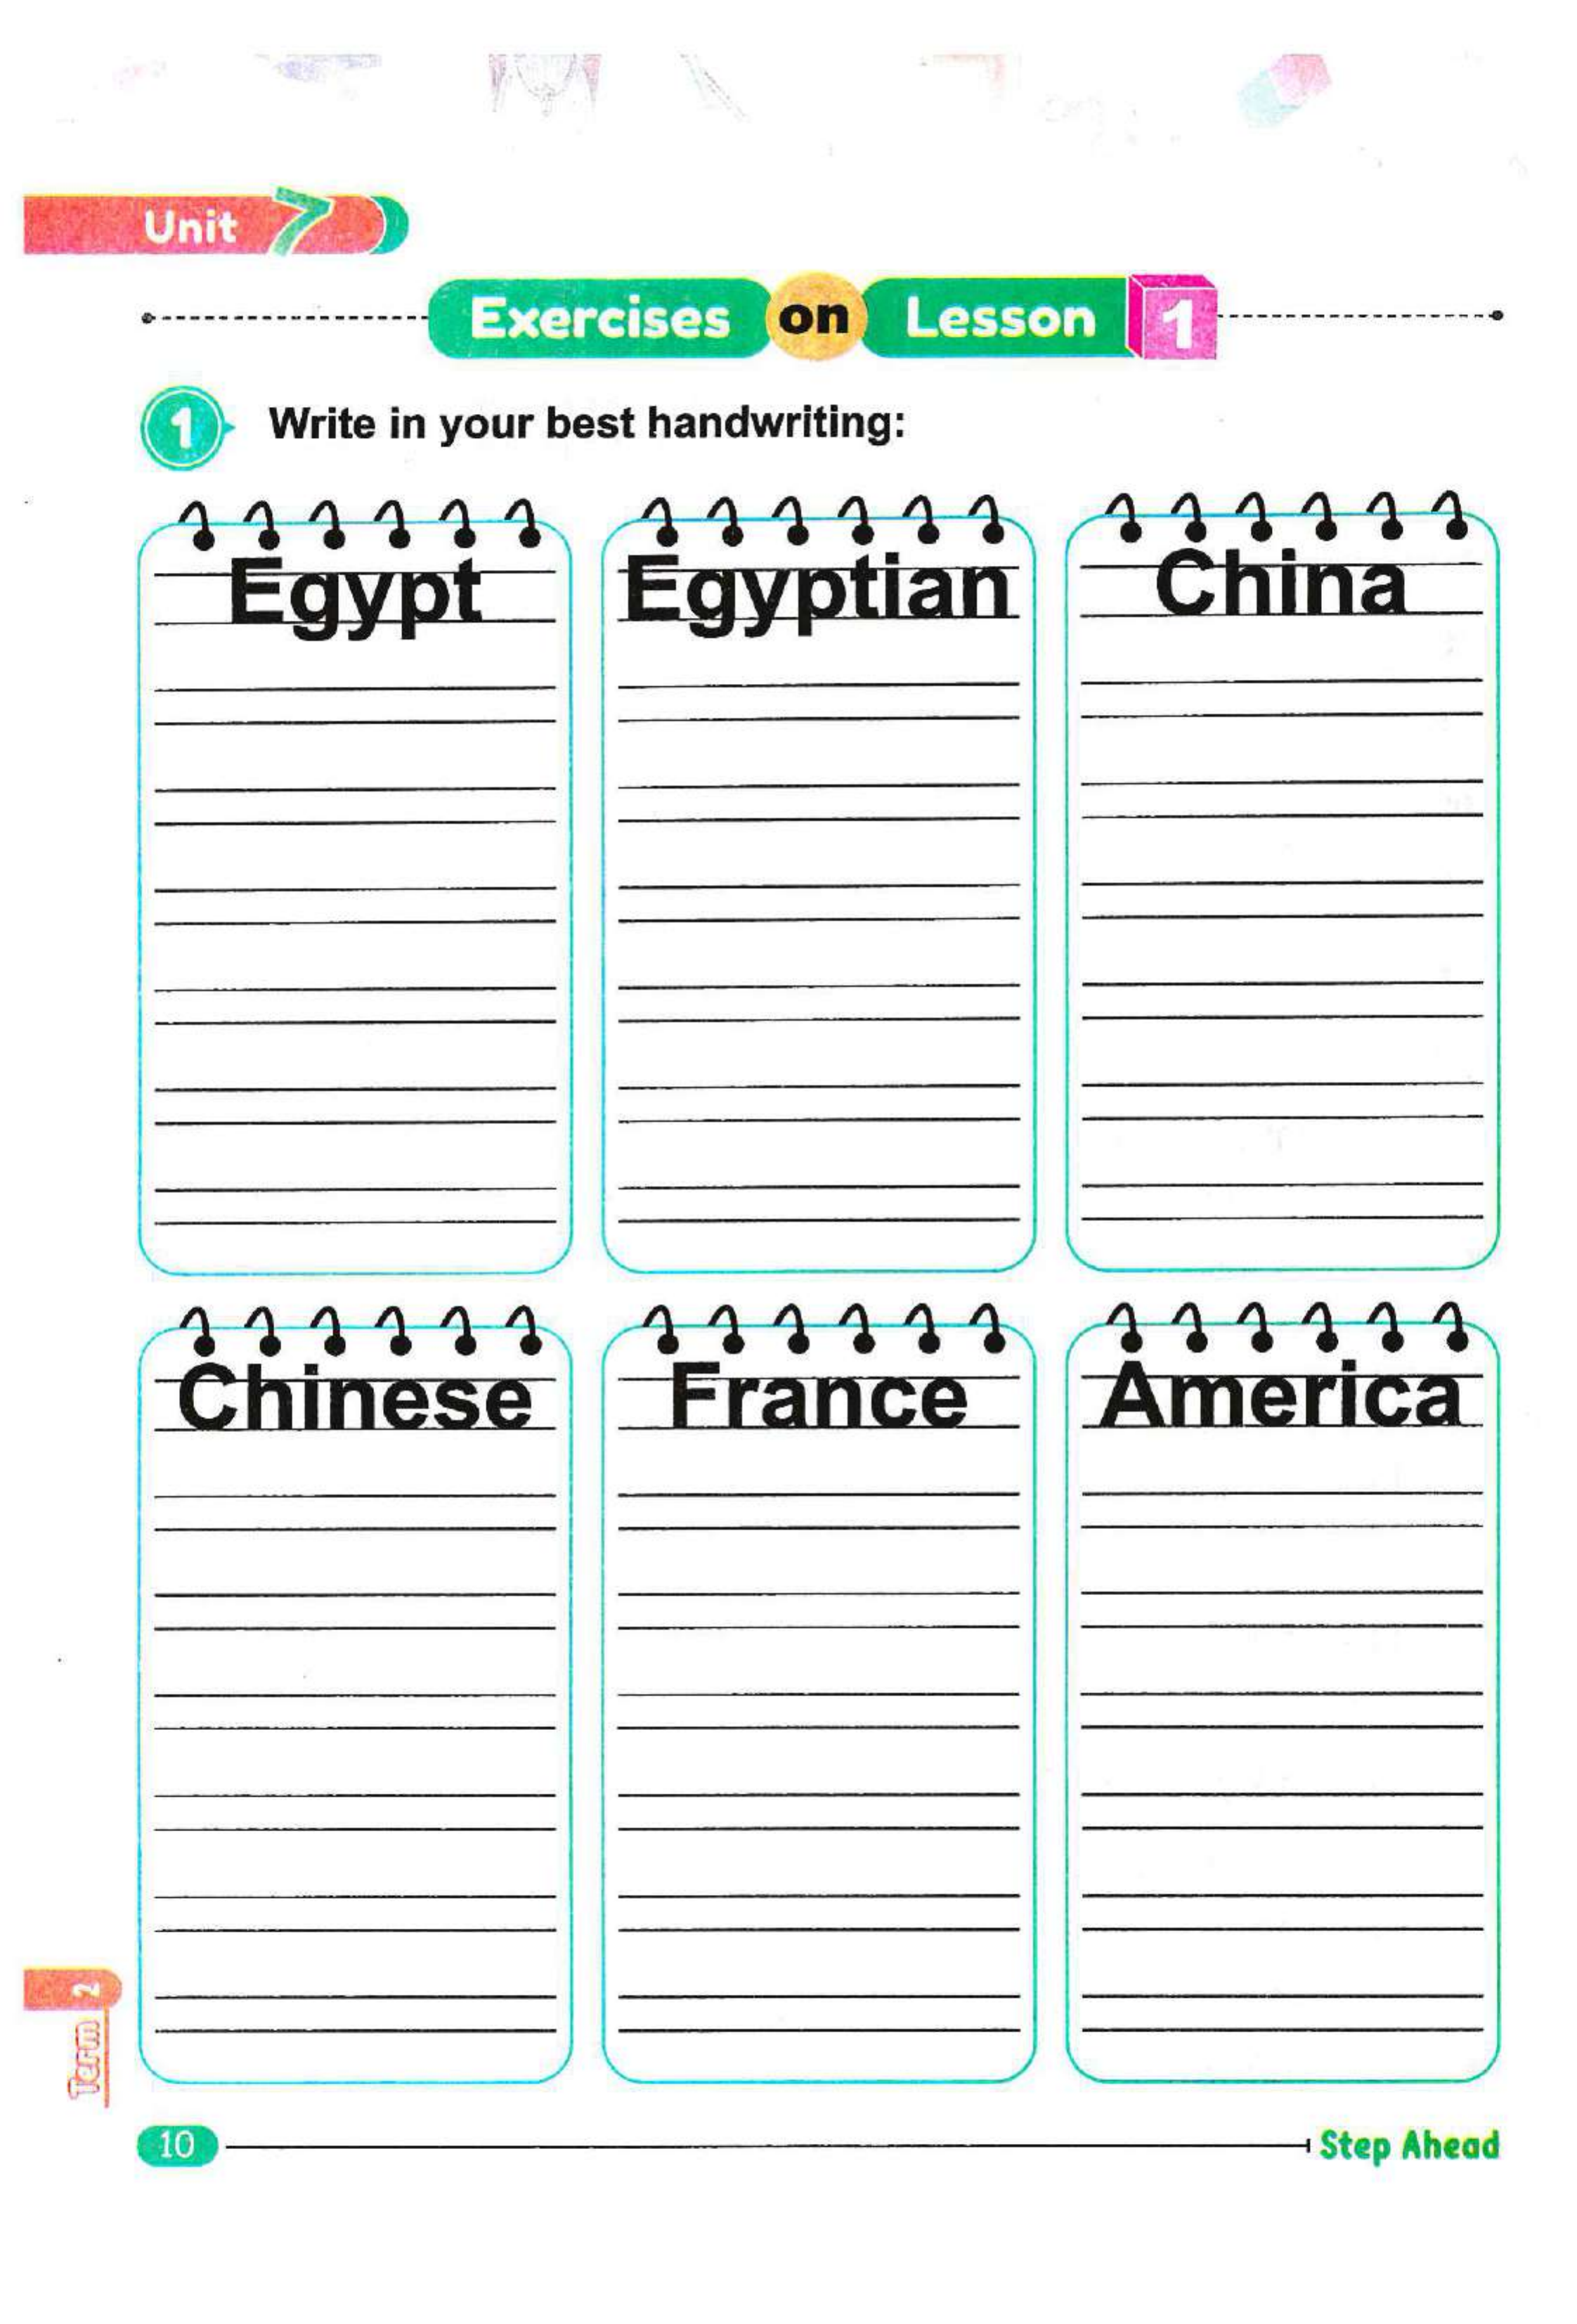 Unit 7
Exercises on Lesson 1
1 Write in your best handwriting:
Egypt Egyptian China
Chinese France America
Term 2
10 Step Ahead